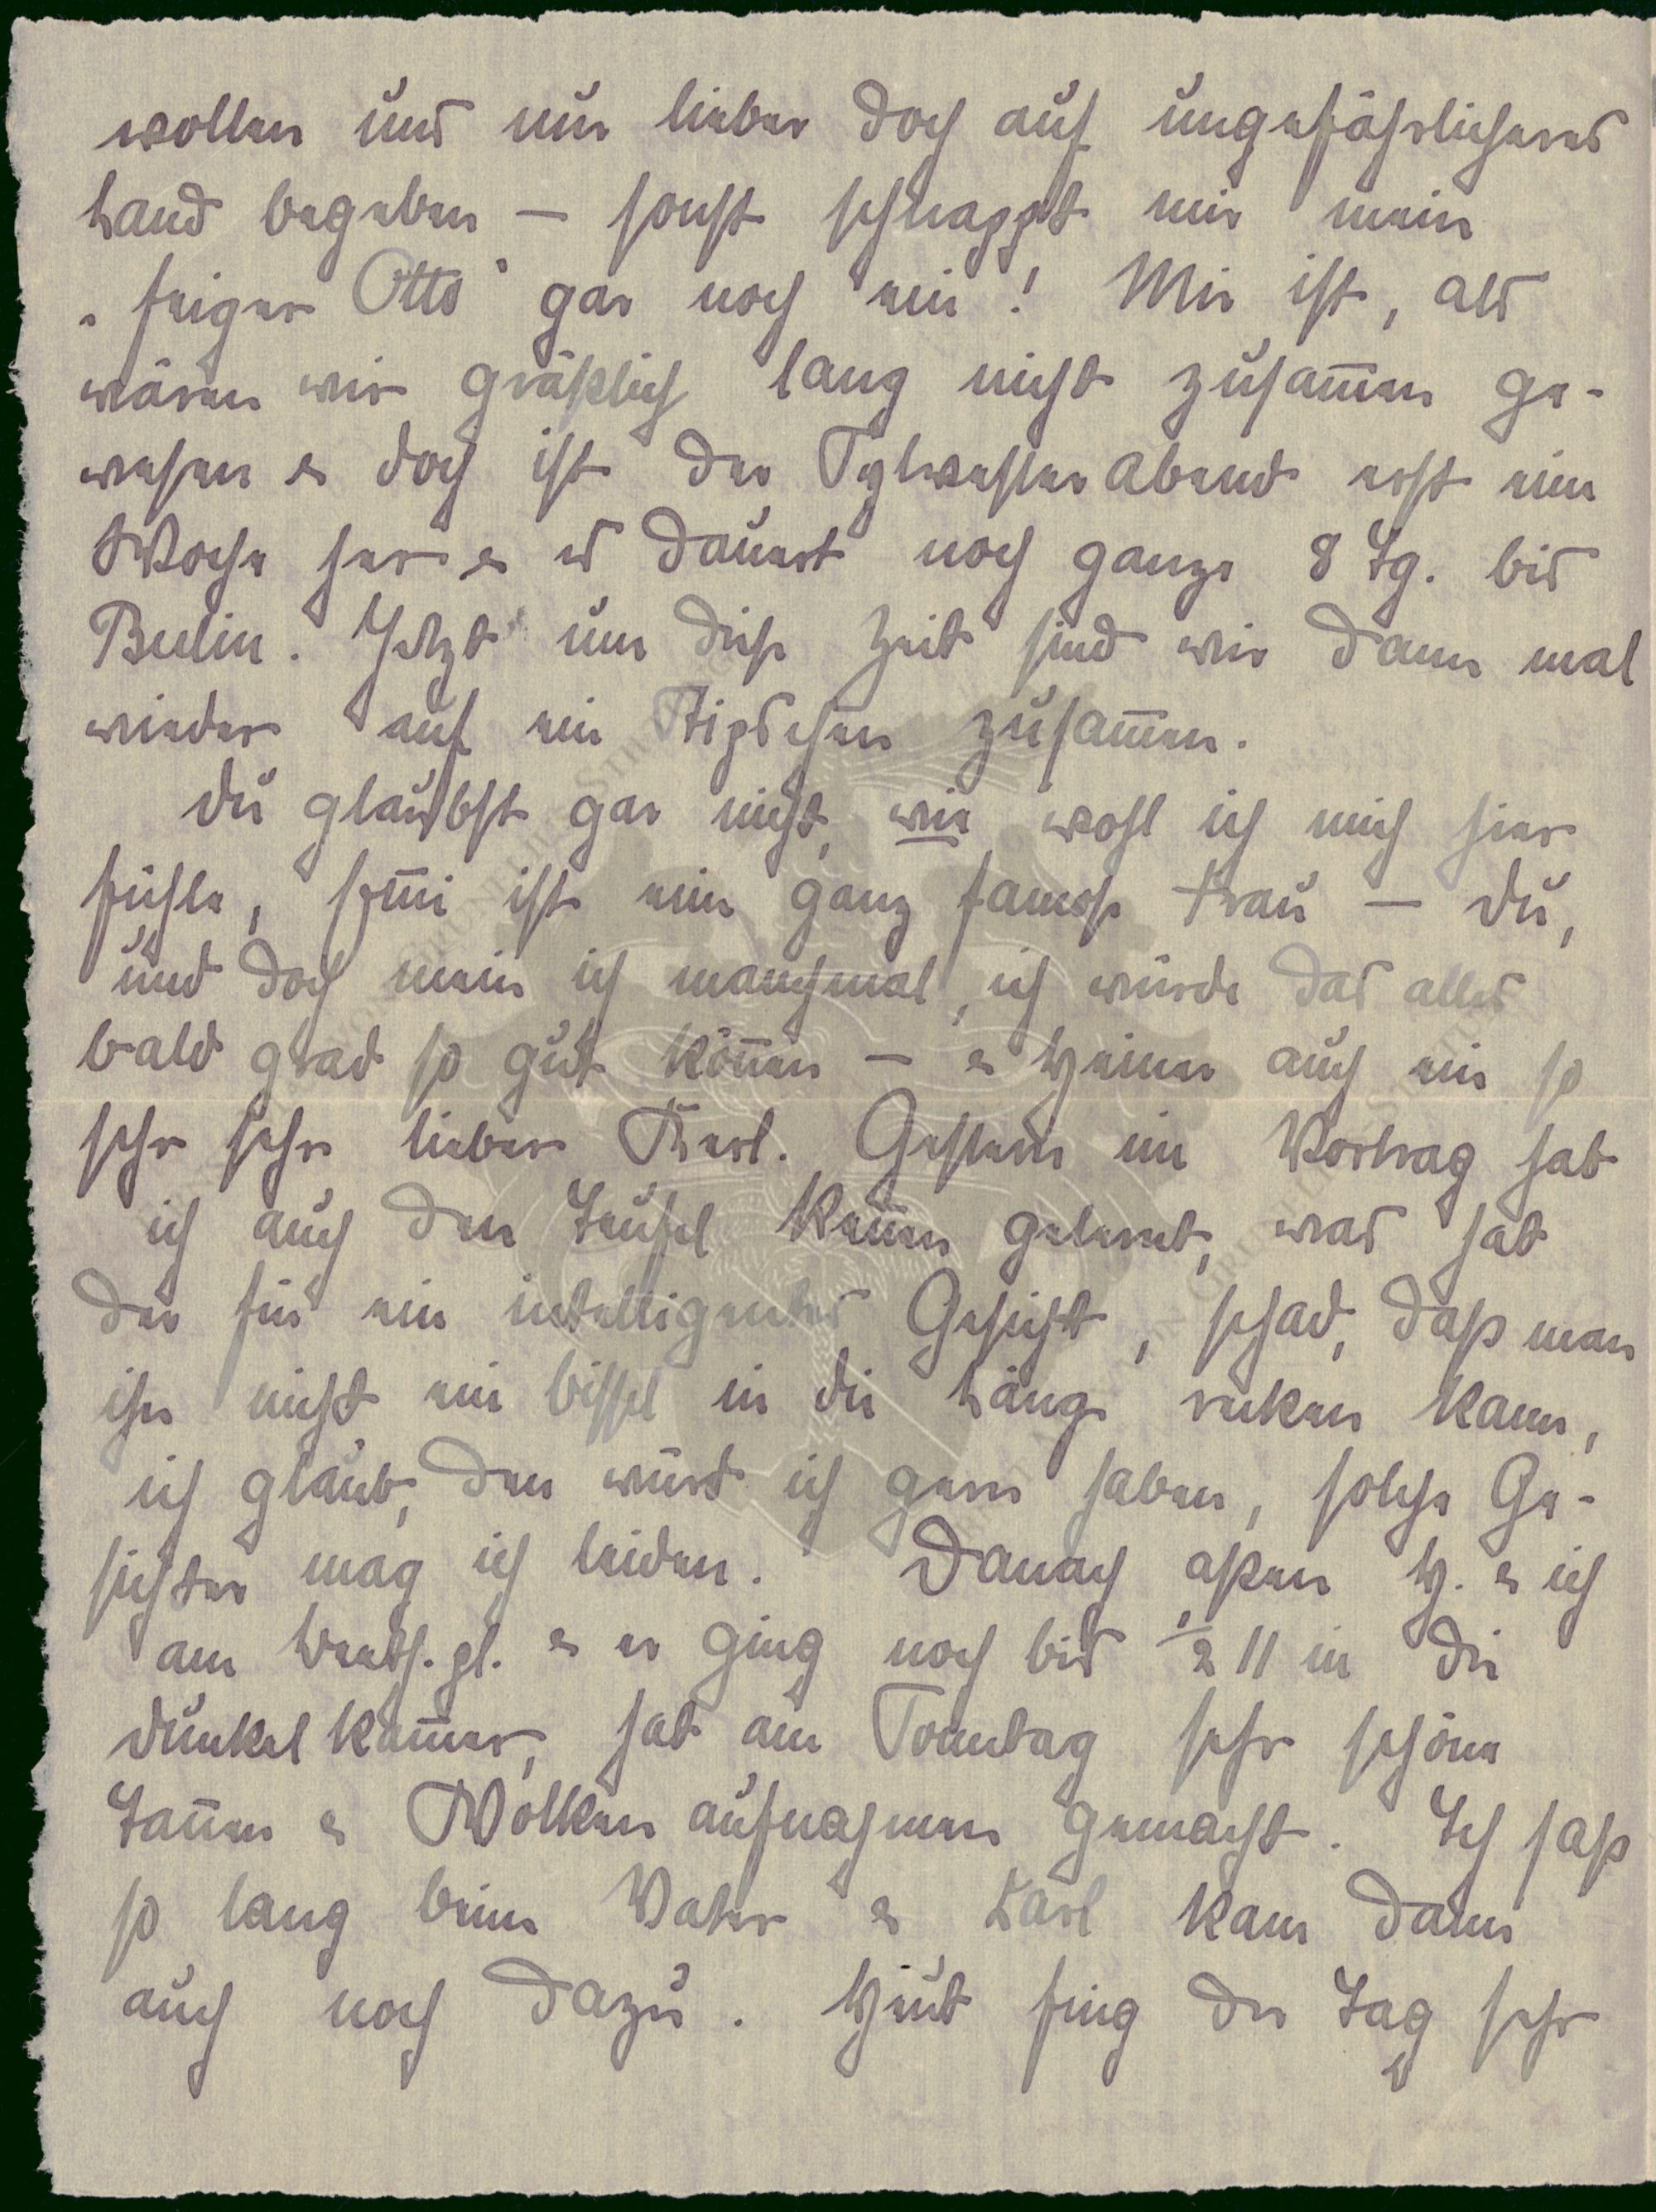 wollen und nur lieber doch auf ungefährlicheres
Land begeben — sonst schnappt mir mein
„feiger Otto" gar noch ein! Mir ist, als
wären wir gräßlich lang nicht zusam̅en ge-
wesen & doch ist der Sylvester Abend erst eine
Woche her & es dauert noch ganze 8 Tg. bis
Berlin. Jetzt um diese Zeit sind wir dann mal
wieder auf ein zusam̅en.
Du glaubst gar nicht, wie wohl ich mich hier
fühle, ist eine ganz famose Frau — Du,
und doch mein ich manchmal, ich würde das alles
bald grad so gut kön̅en — & Heiner auch ein so
sehr sehr lieber Kerl. Gestern im Vortrag hab
ich auch den Teufel ken̅en gelernt, was hat
der für ein intelligentes Gesicht, schad, daß man
ihn nicht ein bissel in die Länge recken kann,
ich glaub, den würd ich gern haben, solche Ge-
sichter mag ich leiden. Danach aßen H. & ich
am & er ging noch bis ½ 11 in die
Dunkelkam̅er, hat am Sonntag sehr schöne
Tan̅en & Wolkenaufnahmen gemacht. Ich saß
so lang beim Vater & Karl kam dann
auch noch dazu. Heut fing der Tag sehr